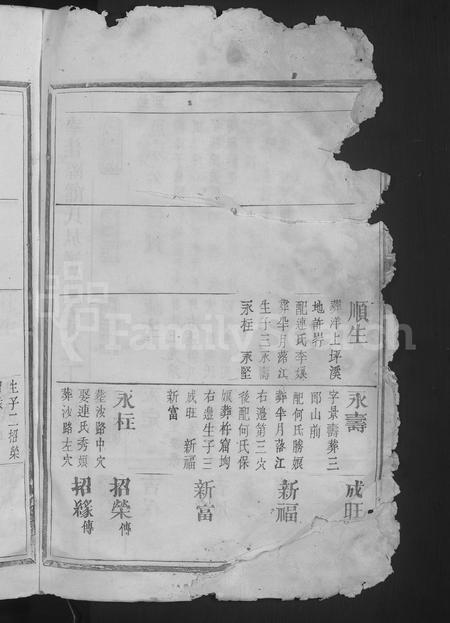 順生
葬洋上坪溪
地許畀
配連氏李娘
葬半月落江
生子三永壽
永枉 永堅
永壽
字景壽葬三
郎山前
配何氏勝娘
葬半月落江
右邉第三穴
後配何氏保
娘葬杵窩垮
右邉生子三
成旺 新福
新富
永枉
塟汝路中穴
娶連氏秀娘
葬汝路左穴
成旺
新福
新富
招榮傳
招緣傳
生子二招榮
FamilySearch